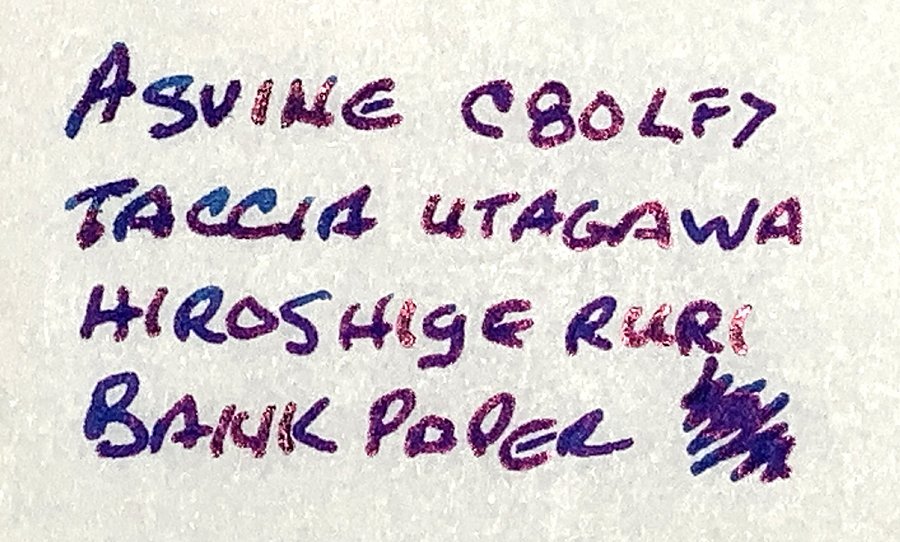 ASVINE C80LF7
TACCIA UTAGAWA
HIROSHIGE RURI
BANK PAPER